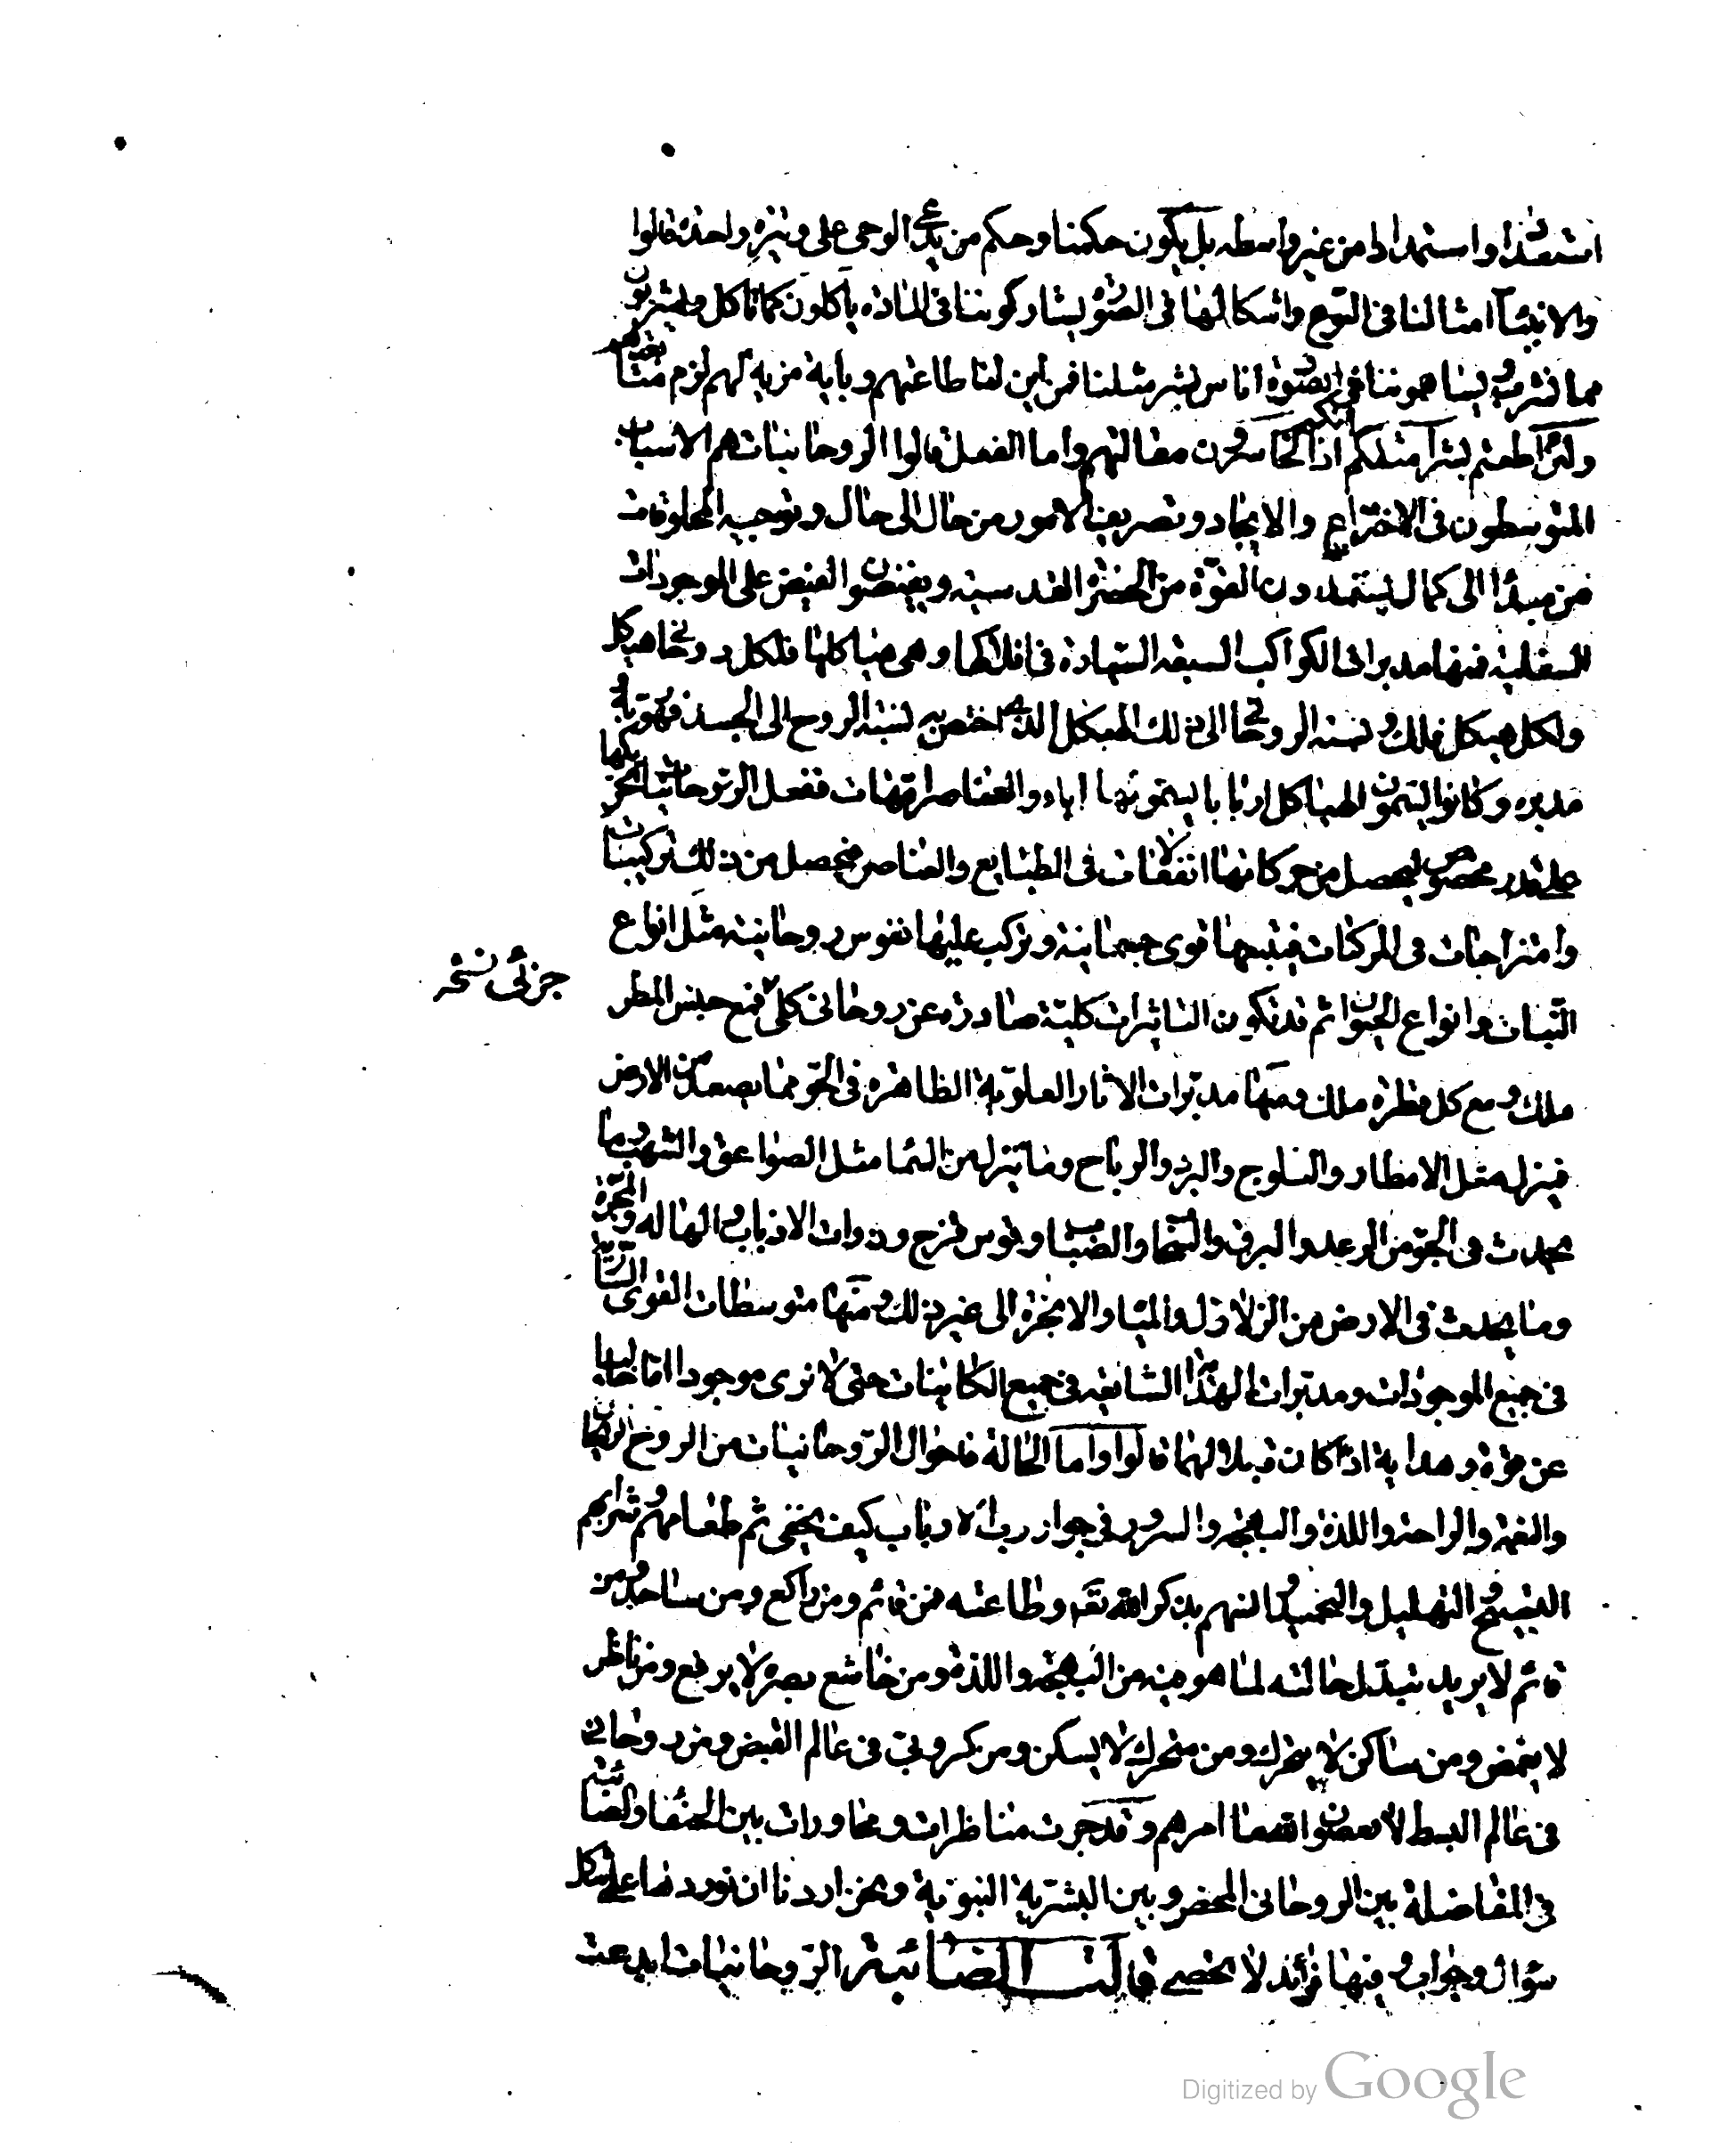 استعدادا واستمدادا من غير واسطه بل يكون حكمنا وحكم من يدعى الوحى على وتيرة واحدة قالوا
والانبياء امثالنا فى النوع واشكالنا فى الصورة يشاركوننا فى المادة ياكلون مما ناكل ويشربون
مما نشرب ويساهموننا فى الصورة اناس بشر مثلنا فمن اين لنا طاعتهم وباية مزية لهم لزم متابعتهم
ولئن اطعتم بشرا مثلكم انكم اذا لخاسرون مقالتهم واما الفعل قالوا الروحانيات هم الاسباب
المتوسطون فى الاختراع والايجاد وتصريف الامور من حال الى حال وتوجيه المخلوقات
من مبدا الى كمال يستمدون القوة من الحضرة القدسية ويفيضون الفيض على الموجودات
السفلية فمنها مدبرات الكواكب السبعة السيارة فى افلاكها وهى هياكلها فلكل روحانى هيكل
ولكل هيكل فلك ونسبة الروحانى الى ذلك الهيكل الذى اختص به نسبة الروح الى الجسد فهو ربه
مدبره وكانوا يسمون الهياكل اربابا يسمونها اباء والعناصر امهات ففعل الروحانيات تحريكها
على قدر مخصوص ليحصل من حركاتها انفعالات فى الطبايع والعناصر فيحصل من ذلك تركيبات
وامتزاجات فى المركبات فيتبعها قوى جسمانية وتركب عليها نفوس روحانية مثل انواع
النبات وانواع الحيوان ثم قد تكون التاثيرات كلية صادرة عن روحانى كلى فمع جنس المطر
جزئى نسخه
ملك ومع كل قطرة ملك ومنها مدبرات الاثار العلوية الظاهرة فى الجو مما يصعد من الارض
فينزل مثل الامطار والثلوج والبرد والرياح وما ينزل من السما مثل الصواعق والشهب وما
يحدث فى الجو من الرعد والبرق والسحاب والضباب وقوس قزح وذوات الاذناب والهاله والمجرة
وما يحدث فى الارض من الزلازل والمياه والابخرة الى غير ذلك ومنها متوسطات القوى السارية
فى جميع الموجودات ومدبرات الهداية الشايعه فى جميع الكاينات حتى لا نرى موجودا ما خاليا
عن قوة وهداية اذا كان قابلا لهما قالوا واما الحالة فاحوال الروحانيات من الروح والريحان
والنعمة والراحة واللذة والبهجة والسرور فى جوار رب الارباب كيف يخفى ثم طعامهم وشرابهم
التسبيح والتهليل والتحميد وانسهم بذكر الله تعه وطاعته فمن قائم ومن راكع ومن ساجد ومن
قائم لا يريد تبدل حالته لما هو فيه من البهجة واللذة ومن خاشع بصره لا يرفع ومن ناظر
لا يغمض ومن ساكن لا يتحرك ومن متحرك لا يسكن ومن كروبى فى عالم القبض ومن روحانى
فى عالم البسط لا يعصون الله ما امرهم وقد جرت مناظرات ومحاورات بين الحنفا والصابئة
فى المفاضلة بين الروحانى المحض وبين البشرية النبوية ونحن اردنا ان نوردها على شكل
سؤال وجواب وفيها فوائد لا تحصى قالت الصابئة الروحانيات ابدعت
Digitized by Google